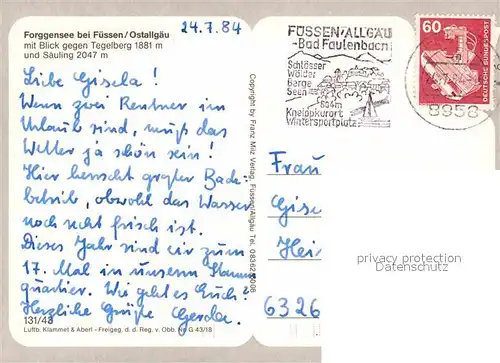 Forggensee bei Füssen/Ostallgäu
mit Blick gegen Tegelberg 1881 m
und Säuling 2047 m
24.7.84
Liebe Gisela!
Wenn zwei Rentner im
Urlaub sind, muß das
Wetter ja schön sein!
Hier herrscht großer Bade-
betrieb, obwohl das Wasser
noch recht frisch ist.
Dieses Jahr sind wir zum
17. Mal in unserem Stamm-
quartier. Wie geht es Euch?
Herzliche Grüße Gerda.
131/43
Luftb: Klammet & Aberl - Freigeg. d. d. Reg. v. Obb. No G 43/18
Copyright by Franz Milz Verlag, Füssen/Allgäu Tel.
FÜSSEN/ALLGÄU
-Bad Faulenbach
Schlösser
Wälder
Berge
Seen
804m
Kneippkurort
Wintersportplatz
60
DEUTSCHE BUNDESPOST
8958
Frau
Gise
Hei
6326
privacy protection
Datenschutz